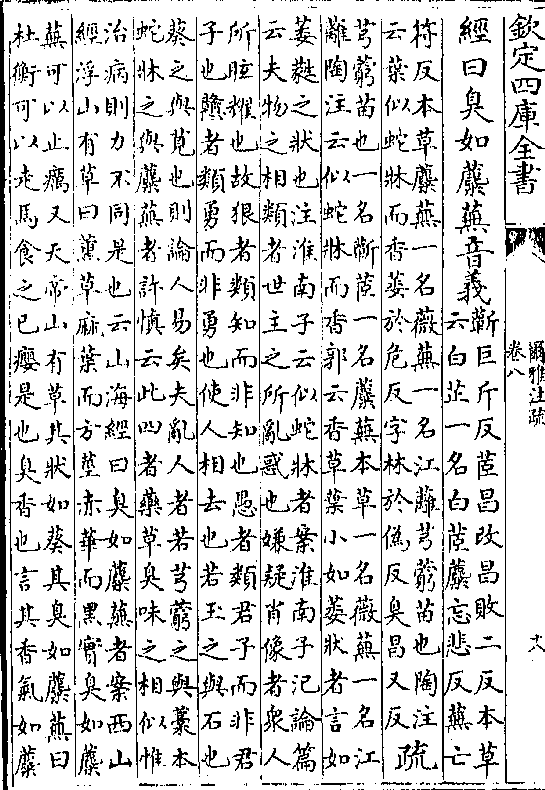 欽定四庫全書
爾雅注疏
卷八
十八
經曰臭如蘪蕪音義
蘄巨斤反茝昌改昌敗二反本草
云白芷一名白茝蘪忘悲反蕪亡
符反本草蘪蕪一名薇蕪一名江蘺芎藭苗也陶注
云葉似蛇牀而香萎於危反字林於偽反臭昌又反
疏
芎藭苗也一名蘄茝一名蘪蕪本草一名薇蕪一名江
蘺陶注云似蛇牀而香郭云香草葉小如萎狀者言如
萎蕤之狀也注淮南子云似蛇牀者案淮南子氾論篇
云夫物之相類者世主之所亂惑也嫌疑肖像者衆人
所眩耀也故狠者類知而非知也愚者類君子而非君
子也戇者類勇而非勇也使人相去也若玉之與石也
葵之與莧也則論人易矣夫亂人者若芎藭之與藁本
蛇牀之與蘪蕪者許慎云此四者藥草臭味之相似惟
治病則力不同是也云山海經曰臭如蘪蕪者案西山
經浮山有草曰薰草麻葉而方莖赤華而黑實臭如蘪
蕪可以止癘又天帝山有草其狀如葵其臭如蘪蕪曰
杜衡可以走馬食之已癭是也臭香也言其香氣如蘪